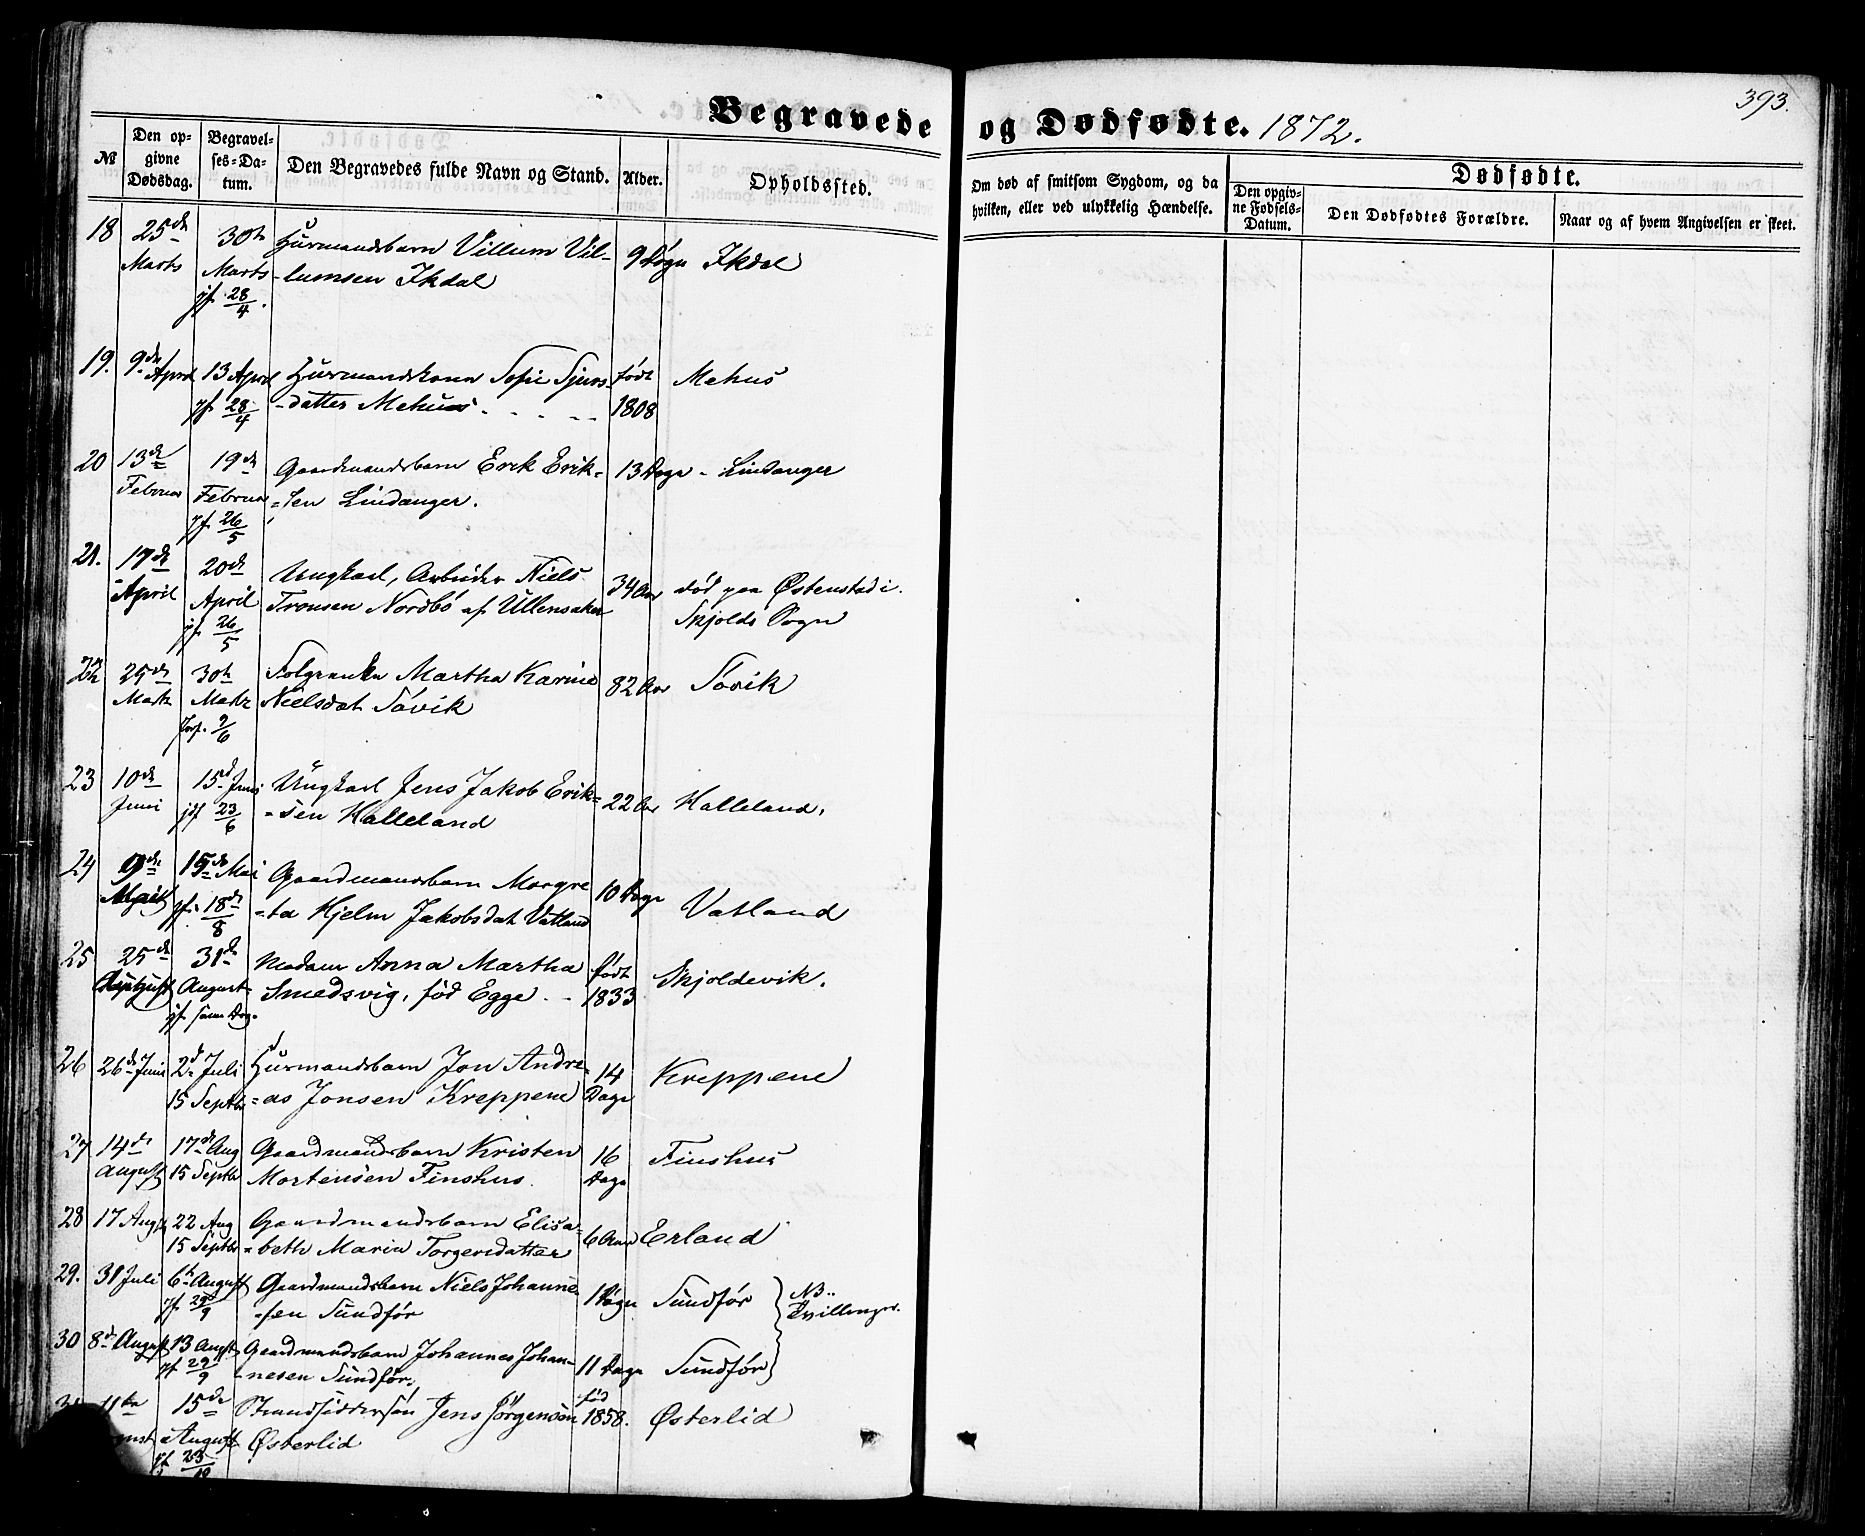 393.
Begravede og Dødfødte. 1872.
№
Den opgivne Dødsdag.
Begravelses-Datum.
Den Begravedes fulde Navn og Stand.
Alder.
Opholdssted.
Om død af smitsom Sygdom, og da hvilken, eller ved ulykkelig Hændelse.
Dødfødte.
Den opgivne Fødsels-Datum.
Den Dødfødtes Forældre.
Naar og af hvem Angivelsen er skeet.
18 25de 30te Husmandsbarn Villum Vil- 9 Døgn Ikdal
Marts Marts -lumsen Ikdal
jf. 28/4.
19. 9de April 13 April Husmandskona Sofie Sjurs- født Mehus
jf. 28/4 -datter Mehus. 1808
20 13de 19de Gaardmandsbarn Erik Erik= 13 Dage - Lindanger
Februar Februar =sen Lindanger.
jf. 26/5
21. 17de 20de Ungkarl, Arbeider Niels 34 Aar død paa Østenstad i
April April Tronsen Nordbö af Ullensaker Skjolds Sogn
jf. 26/5
22 25de 30te Folgeenke Martha Karine 82 Aar Sövik
Marts Marts Nielsdat Sövik
forf. 9/6
23 10de 15d Juni Ungkarl Jens Jakob Erik= 22 Aar Halleland.
Juni jf 23/6 =sen Halleland
24 9de 15de Mai Gaardmandsbarn Margre 10 Dage Vatland
jf. 18de/8 =ta Hjelm Jakobsdat Vatland
25 25de 31d Madam Anna Martha født Skjoldevik.
August August Smedsvig, fød Egge. 1833
jf. samme Dag.
26 26de Juni 2d Juli Husmandsbarn Jon Andre- 14 Kreppene
15 Septbr =as Jonsen Kreppene Dage
27 14de 17de Aug Gaardmandsbarn Kristen 16 Finshus
August 15 Septbr Mortensen Finshus. Dage
28 17 Aug 22 Aug Gaardmandsbarn Elisa= 6 Aar Erland
15 Septbr =beth Maria Torgersdatter
29. 31 Juli 6te August Gaardmandsbarn Niels Johanne- 1 Døgn Sundfør NB..
jf. 29/9 =sen Sundfør Tvillinger.
30 8de August 13 August Gaardmandsbarn Johannes Johan- 11 Dage Sundfør
jf 29/9 -nesen Sundfør.
11te 15de Strandsiddersön Jens Jörgensen fød 1858. Østerlid
August Østerlid
jf 23/10